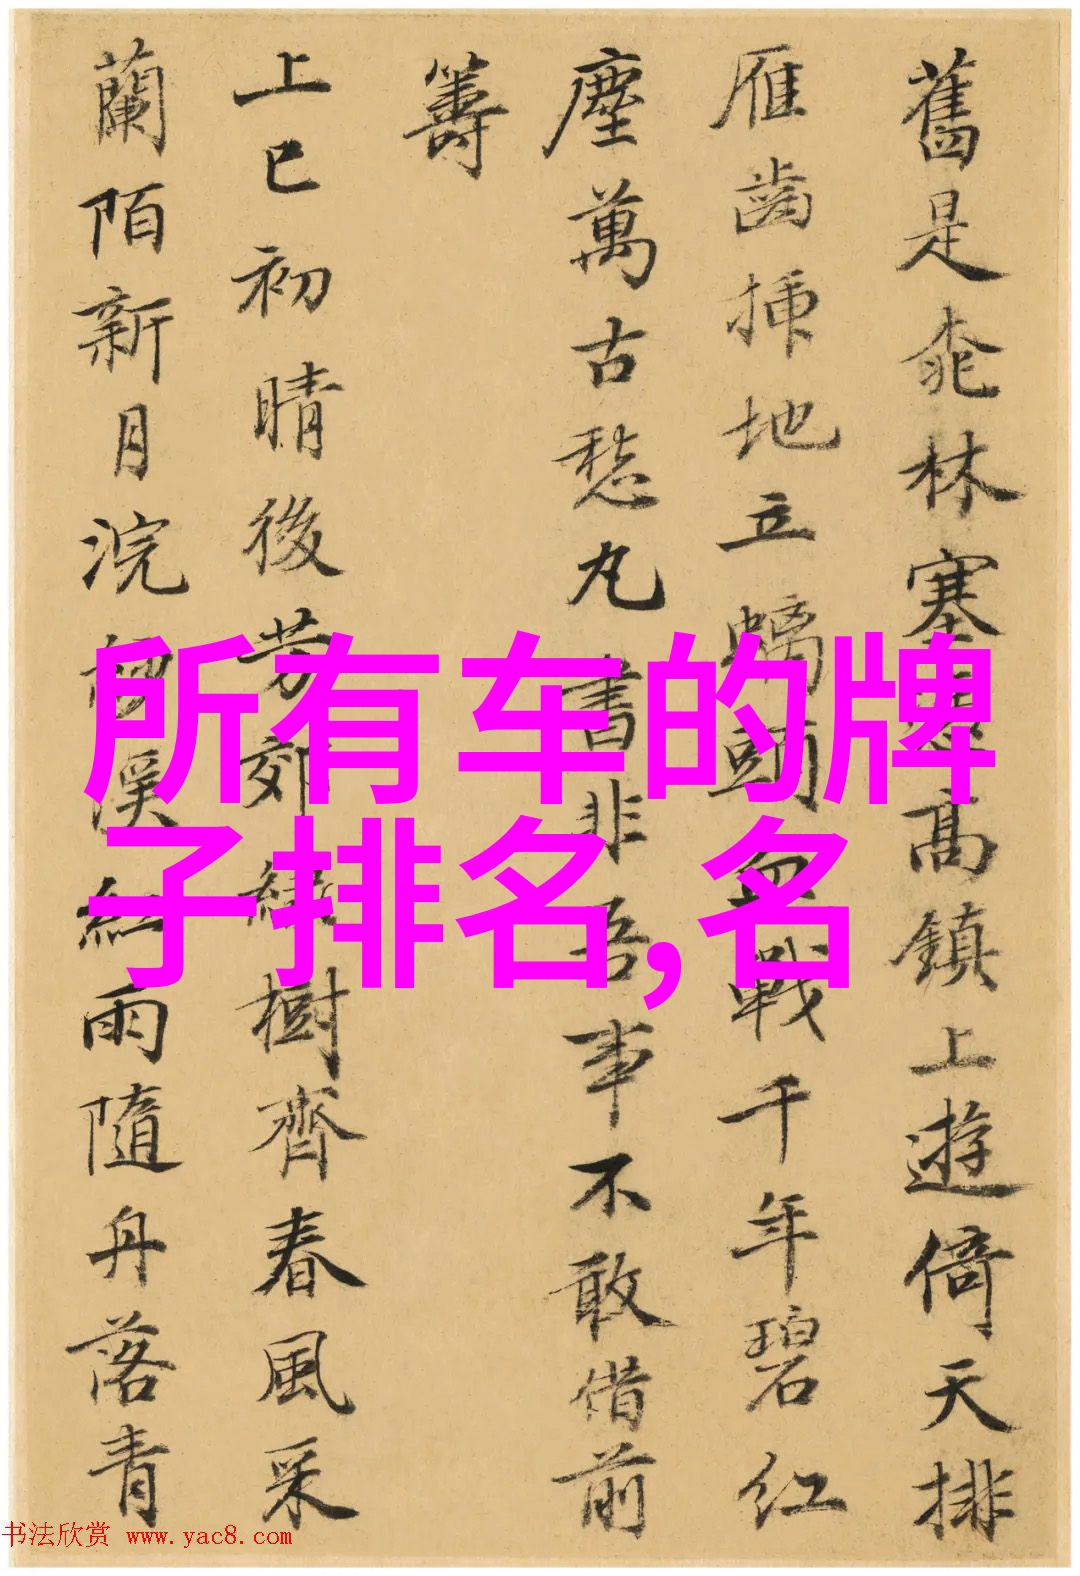 舊是桃林塞高鎮上遊倚天排
雁齒插地立螭頭血戰千年碧紅
塵萬古愁丸書非吾事不敢借前
籌
上巳初晴後芳郊綠樹齊春風采
蘭陌新月浣溪紅雨隨舟落青
所有车的牌
子排名,名
书法欣赏 www.yac8.com